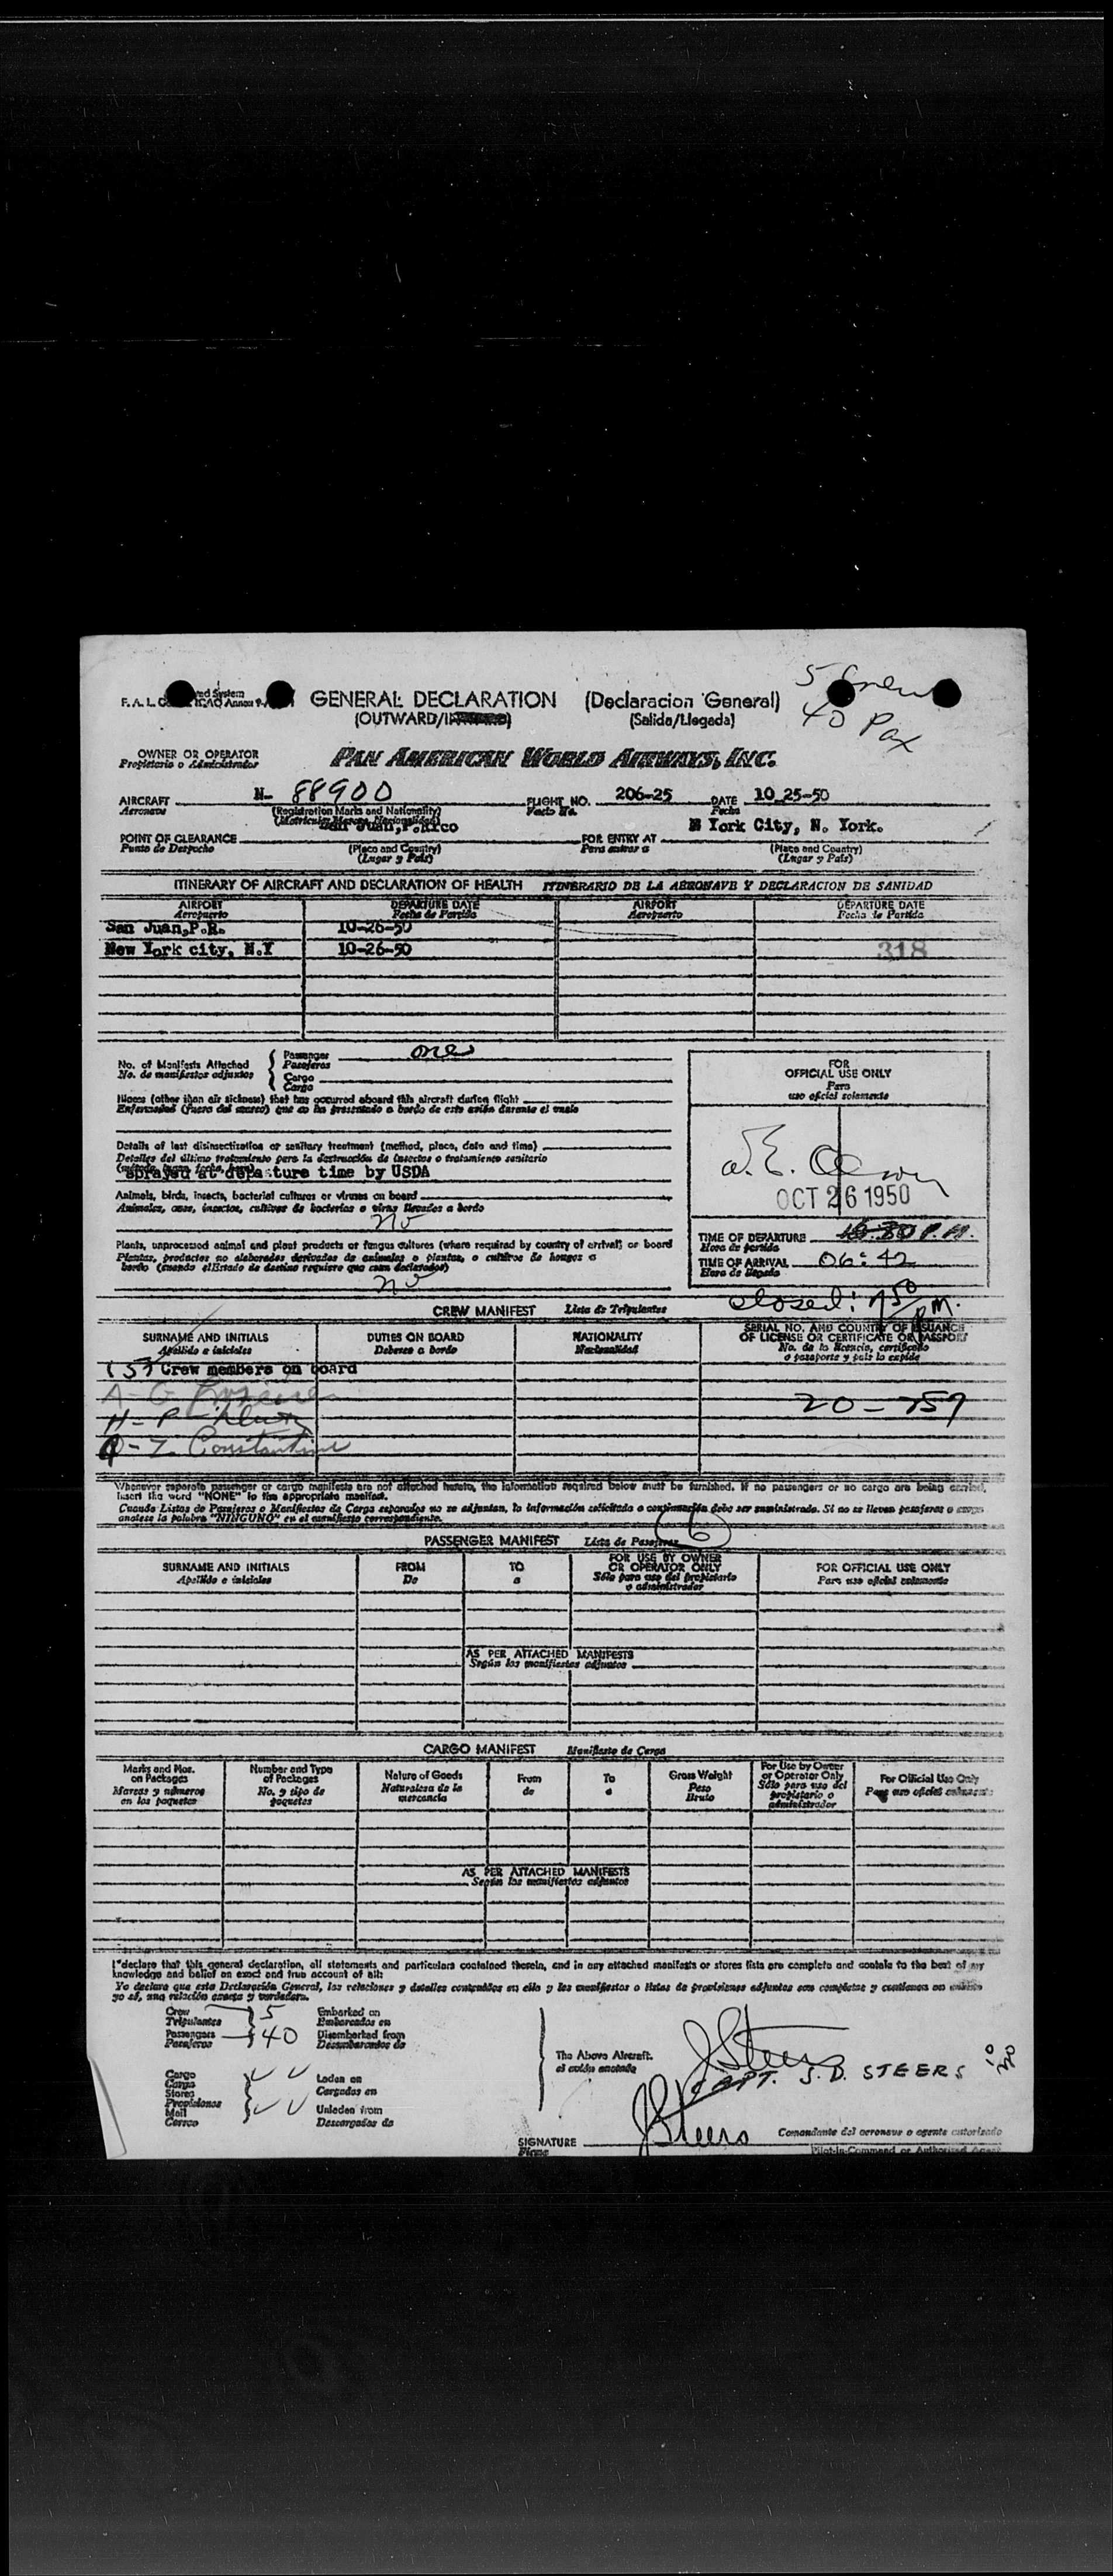 5 Crew
40 Pax
F. A. L. ICAO Annex 9
GENERAL DECLARATION (Declaracion General)
(OUTWARD/ (Salida/Llegada)
OWNER OR OPERATOR
Propietario o Administrador
PAN AMERICAN WORLD AIRWAYS, INC.
AIRCRAFT N- 88900 FLIGHT NO. 206-25 DATE 10 25-50
Aeronave (Registration Marks and Nationality) Vuelo No. Fecha
San Juan, P. Rico York City, N. York.
POINT OF CLEARANCE FOR ENTRY AT
Punto de Despacho (Place and Country) Para entrar a (Place and Country)
(Lugar y País) (Lugar y País)
ITINERARY OF AIRCRAFT AND DECLARATION OF HEALTH ITINERARIO DE LA AERONAVE Y DECLARACION DE SANIDAD
AIRPORT DEPARTURE DATE AIRPORT DEPARTURE DATE
Aeropuerto Fecha de Partida Aeropuerto Fecha de Partida
San Juan,P.R. 10-26-50
New York city, N.Y 10-26-50 318
No. of Manifests Attached Passenger one
No. de manifiestos adjuntos Pasajeros
Cargo
Cargo
FOR
OFFICIAL USE ONLY
Para
uso oficial solamente
Illness (other than air sickness) that has occurred aboard this aircraft during flight
Enfermedad (fuera del mareo) que se ha presentado a bordo de este avión durante el vuelo
Details of last disinsectization or sanitary treatment (method, place, date and time)
Detalles del último tratamiento para la destrucción de insectos o tratamiento sanitario
sprayed at departure time by USDA
OCT 26 1950
Animals, birds, insects, bacterial cultures or viruses on board
Animales, aves, insectos, cultivos de bacterias o virus llevados a bordo
no
Plants, unprocessed animal and plant products or fungus cultures (where required by country of arrival) on board
Plantas, productos no elaborados derivados de animales o plantas, o cultivos de hongos a
bordo (cuando el Estado de destino requiere que sean declarados)
no
TIME OF DEPARTURE P.M.
Hora de partida
TIME OF ARRIVAL 06:42
Hora de llegada
closed: 7 50 P.M.
CREW MANIFEST Lista de Tripulantes
SURNAME AND INITIALS DUTIES ON BOARD NATIONALITY SERIAL NO. AND COUNTRY OF ISSUANCE
OF LICENSE OR CERTIFICATE OR PASSPORT
Apellido e iniciales Deberes a bordo Nacionalidad No. de la licencia, certificado
o pasaporte y país lo expide
(5) Crew members on board
20-757
Constantine
Whenever separate passenger or cargo manifests are not attached hereto, the information required below must be furnished. If no passengers or no cargo are being carried,
insert the word "NONE" in the appropriate manifest.
Cuando Listas de Pasajeros o Manifiestos de Carga separados no se adjuntan, la información solicitada a continuación debe ser suministrada. Si no se llevan pasajeros o carga
anotese la palabra "NINGUNO" en el manifiesto correspondiente.
6
PASSENGER MANIFEST Lista de Pasajeros
SURNAME AND INITIALS FROM TO FOR USE BY OWNER
OR OPERATOR ONLY FOR OFFICIAL USE ONLY
Apellido e iniciales De a Sólo para uso del propietario
o administrador Para uso oficial solamente
AS PER ATTACHED MANIFESTS
Según los manifiestos adjuntos
CARGO MANIFEST Manifiesto de Carga
Marks and Nos.
on Packages
Marcas y números
en los paquetes
Number and Type
of Packages
No. y tipo de
paquetes
Nature of Goods
Naturaleza de la
mercancía
From
de
To
a
Gross Weight
Peso
Bruto
For Use by Owner
or Operator Only
Sólo para uso del
propietario o
administrador
For Official Use Only
Para uso oficial solamente
AS PER ATTACHED MANIFESTS
Según los manifiestos adjuntos
I declare that this general declaration, all statements and particulars contained therein, and in any attached manifests or stores lists are complete and contain to the best of my
knowledge and belief an exact and true account of all:
Yo declaro que esta Declaración General, las relaciones y detalles contenidos en ella y los manifiestos o listas de provisiones adjuntos son completos y contienen
yo sé, una relación exacta y verdadera.
Crew 5 Embarked on
Tripulantes Embarcados en
Passengers 40 Disembarked from
Pasajeros Desembarcados de
The Above Aircraft.
el avión anotado
J Steers
CAPT. J. D. STEERS
Cargo Laden on
Carga Cargados en
Stores
Provisiones
Mail Unladen from
Correo Descargados de
SIGNATURE J Steers Comandante del aeronave o agente autorizado
Firma Pilot-in-Command or Authorized Agent